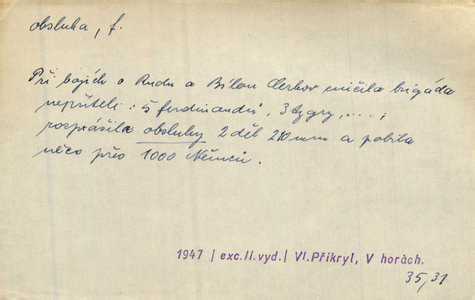 obsluha, f.
Při bojích o Rudu a Bílou Cerkov zničila brigáda
nepříteli: 5 ferdinandů, 3 tygry, ....,
rozprášila obsluhy 2 děl 210 mm a pobila
něco přes 1000 Němců.
1947 | exc. II. vyd. | Vl. Přikryl, V horách.
35,31